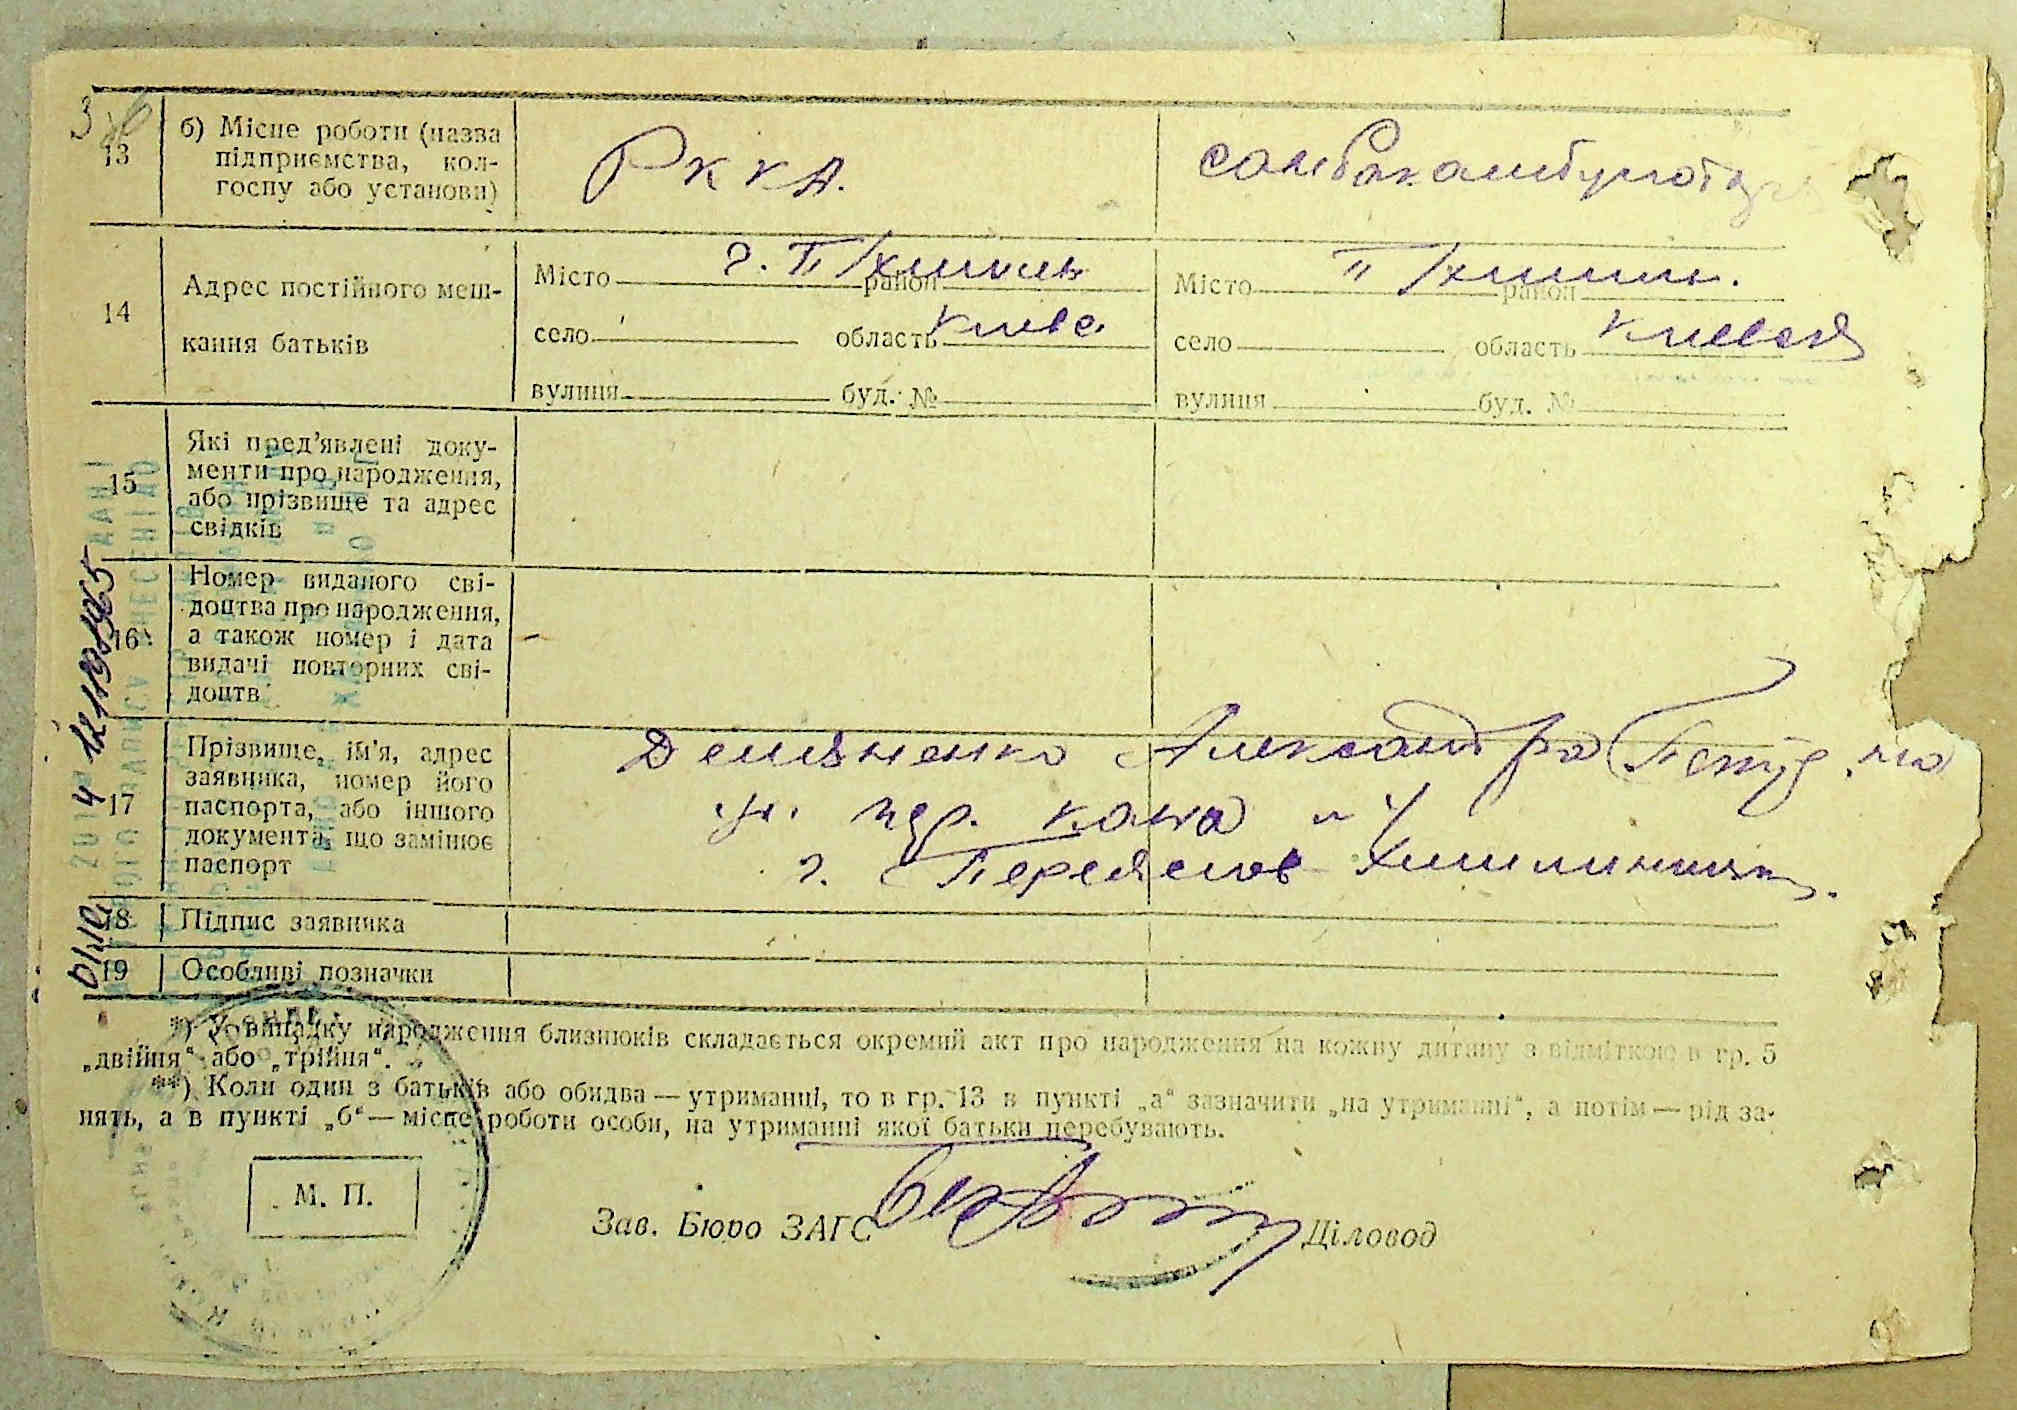 13
б) Місце роботи (назва
підприємства, кол-
госпу або установи)
РККА.
14
Адрес постійного меш-
кання батьків
Місто г. П/Хмильн район
село область Киевс.
вулиця буд. №
Місто П/Хмильн. район
село область Киевск
вулиця буд. №
15
Які пред’явлені доку-
менти про народження,
або прізвище та адрес
свідків
16
Номер виданого сві-
доцтва про народження,
а також номер і дата
видачі повторних сві-
доцтв
17
Прізвище, ім’я, адрес
заявника, номер його
паспорта, або іншого
документа, що замінює
паспорт
Демяненко Александра
г. Переяслов-Хмильницк.
18
Підпис заявника
19
Особливі позначки
*) У випадку народження близнюків складається окремий акт про народження на кожну дитину з відміткою в гр. 5
„двійня“ або „трійня“.
**) Коли один з батьків або обидва — утриманці, то в гр. 13 в пункті „а“ зазначити „на утриманні“, а потім — рід за-
нять, а в пункті „б“ — місце роботи особи, на утриманні якої батьки перебувають.
М. П.
Зав. Бюро ЗАГС
Діловод